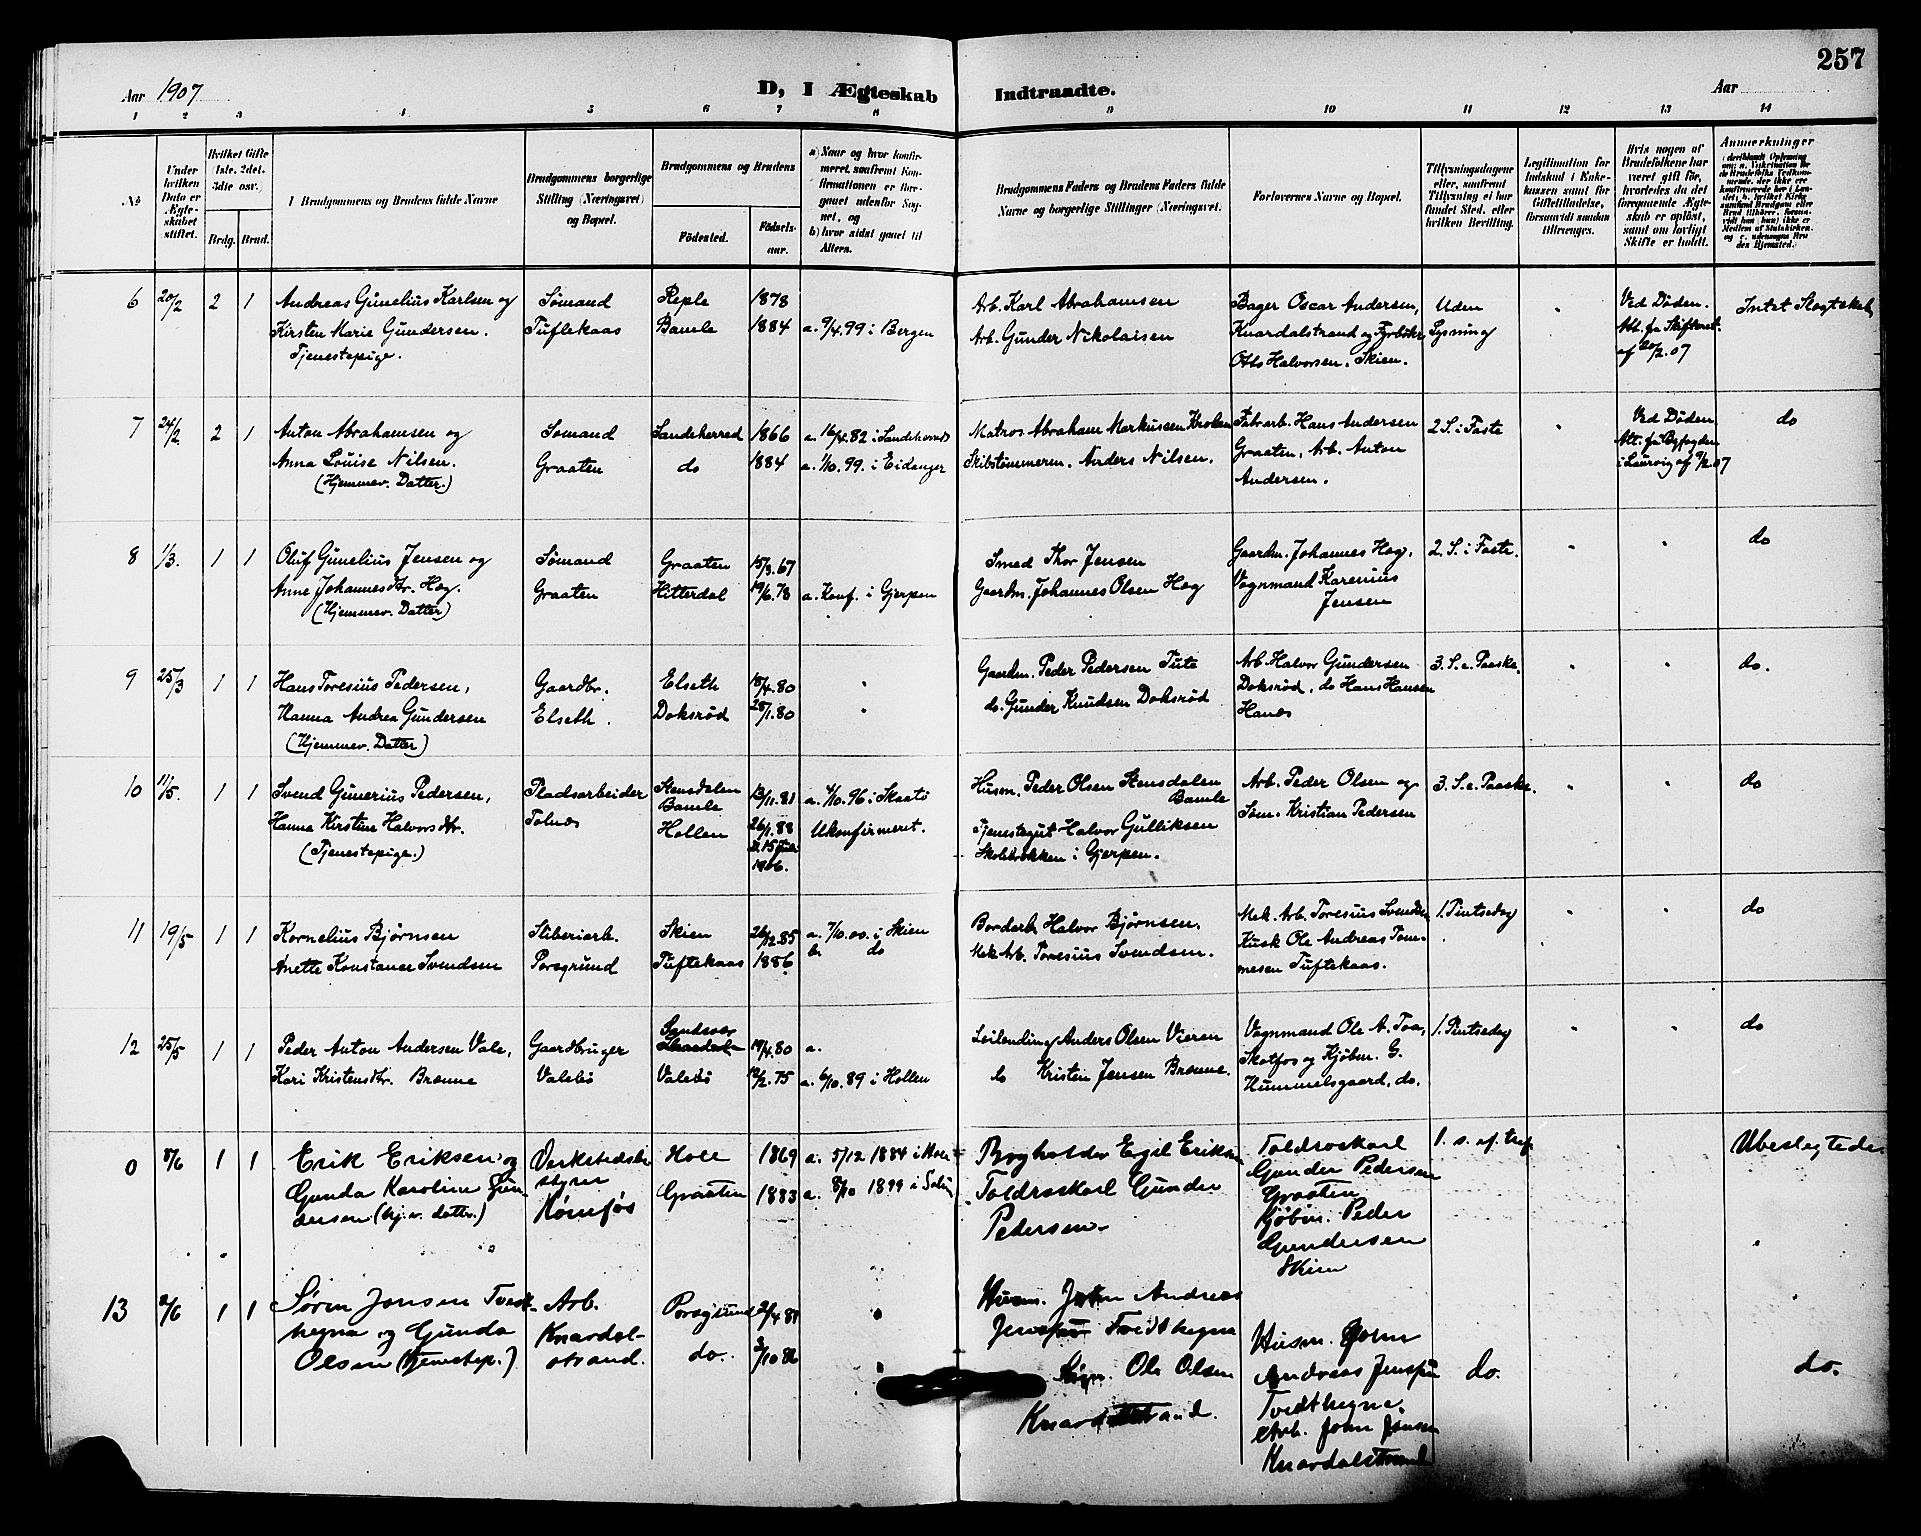 257
Aar 1907
D, I Ægteskab Indtraadte.
Aar
1 2 3 4 5 6 7 8 9 10 11 12 13 14
No
Under hvilken Dato er Ægteskabet stiftet.
Hvilket Gifte 1ste. 2det. 3die osv.
Brdg. Brud.
Brudgommens og Brudens fulde Navne
Brudgommens borgerlige Stilling (Næringsvei) og Bopæl.
Brudgommens og Brudens
Fødested.
Fødselsaar.
a) Naar og hvor konfirmeret, saafremt Konfirmationen er foregaaet udenfor Sognet, og
b) hvor sidst gaaet til Alters.
Brudgommens Faders og Brudens Faders fulde Navne og borgerlige Stillinger (Næringsvei.
Forlovernes Navne og Bopæl.
Tillysningsdagene eller, saafremt Tillysning ei har fundet Sted, efter hvilken Bevilling.
Legitimation for Indskud i Enkekassen samt for Giftetilladelse, forsaavidt saadan tiltrænges.
Hvis nogen af Brudefolkene har været gift før, hvorledes da det foregaaende Ægteskab er opløst, samt om lovligt Skifte er holdt.
Anmerkninger
6 20/2 2 1
Andreas Gunelius Karlsen og
Kirsten Marie Gundersen.
Tjenestepige.
Sømand
Tuftekaas
Reple
Bamle
1878
1884
a. 9/4.99 i Bergen
Arb. Karl Abrahamsen
Arb. Gunder Nikolaisen
Bager Oscar Andersen,
Knardalstrand og
Halvorsen. Skien.
Uden
Lysning
Ved Døden.
Att. fra Skifteret.
af 20/2.07
Intet Slegtskab
7 24/2 2 1
Anton Abrahamsen og
Anna Louise Nilsen.
(Hjemmev. Datter.)
Sømand
Graaten
Sandeherred
do
1866
1884
a. 16/4.82 i Sandeherred
a. 1/10.99. i Eidanger
Matros Abraham Markussen
Skibstømmerm. Anders Nilsen.
Fabrarb. Hans Andersen
Graaten, Arb. Anton
Andersen.
2 S. i Faste
Ved Døden
Att. fra Byfogden
i Laurvig af 9/2.07
do
8 1/3. 1 1
Oluf Gunelius Jensen og
Anne Johannesdtr. Hog.
(Hjemmev. Datter)
Sømand
Graaten
Graaten
Hitterdal
15/3.67
19/6.78
a. Konf. i Gjerpen
Smed Thor Jensen
Gaardm. Johannes Olsen Hog
Gaardm. Johannes Hog,
Vognmand Karenius
Jensen
2. S. i Faste.
do
9 25/3 1 1
Hans Toresius Pedersen,
Hanna Andrea Gundersen
(Hjemmev. Datter)
Gaardbr.
Elseth.
Elseth
Doksrød
18/4.80
28/1.80
Gaardm. Peder Pedersen Tute
do. Gunder Knudsen Doksrød
Arb. Halvor Gundersen
Doksrød, do Hans Hansen
Hanes
3. S. e. Paaske.
do.
10 11/5. 1 1
Svend Gunerius Pedersen,
Hanna Kirstine Halvorsdtr.
(Tjenestepige.)
Pladsarbeider
Tolnæs
Stensdalen
Bamle
Hollen
13/11.81
26/1.88
1906.
a. 4/10.96 i Skaatø
Ukonfirmeret.
Husm. Peder Olsen Stensdalen
Bamle
Tjenestegut Halvor Gulliksen
i Gjerpen.
Arb. Peder Olsen og
Søm. Kristian Pedersen
3. S. e. Paaske.
do
11 19/5 1 1
Kornelius Bjørnsen
Anette Konstance Svendsen
Sliberiarb.
Porsgrund
Skien
Tuftekaas
26/12.85
1886
a. 7/10.00. i Skien
b. do
Borderb. Halvor Bjørnsen.
Mek. Arb. Toresius Svendsen.
Mek. Arb. Toresius Svendsen
Kusk Ole Andreas Tom-
mesen Tuftekaas.
1. Pintsedag
do
12 25/5 1 1
Peder Anton Andersen Vale,
Kari Kristensdtr. Brenne
Gaardbruger
Valebø
Valebø
19/4.80
12/2.75
a.
a. 6/10.89 i Hollen
Leilending Anders Olsen Vieren
do Kristen Jensen Brenne.
Vognmand Ole A. Toa,
Skotfos og Kjøbm. G.
Hummelsgaard, do.
1. Pintsedag
do
0 8/6 1 1
Erik Eriksen og
Gunda Karoline Gun
dersen (hj. v. datter.)
Verkstedsbe
styrer
Kornfos
Hole
Graaten
1869
1883
a. 5/12 1884 i Hole
a. 8/10 1899 i Solum
Brygholder Egil Eriksen
Toldroskarl Gunder
Pedersen.
Toldroskarl
Gunder Pedersen
Graaten
Kjøbm. Peder
Gundersen
Skien
1. s. ef. tref.
Ubeslegtede
13 2/6 1 1
Søren Jensen Tvedt-
hegna og Gunda
Olsen (tjenestep.)
Arb.
Knardal-
strand.
Porsgrund
do.
2/4 81
3/10 86
Husm. John Andreas
Tvidthegna
Ole Olsen
Knardalstrand.
Husm. John
Andreas
Tvidthegna.
Arb. John Jensen
Knardalstrand
do.
do.